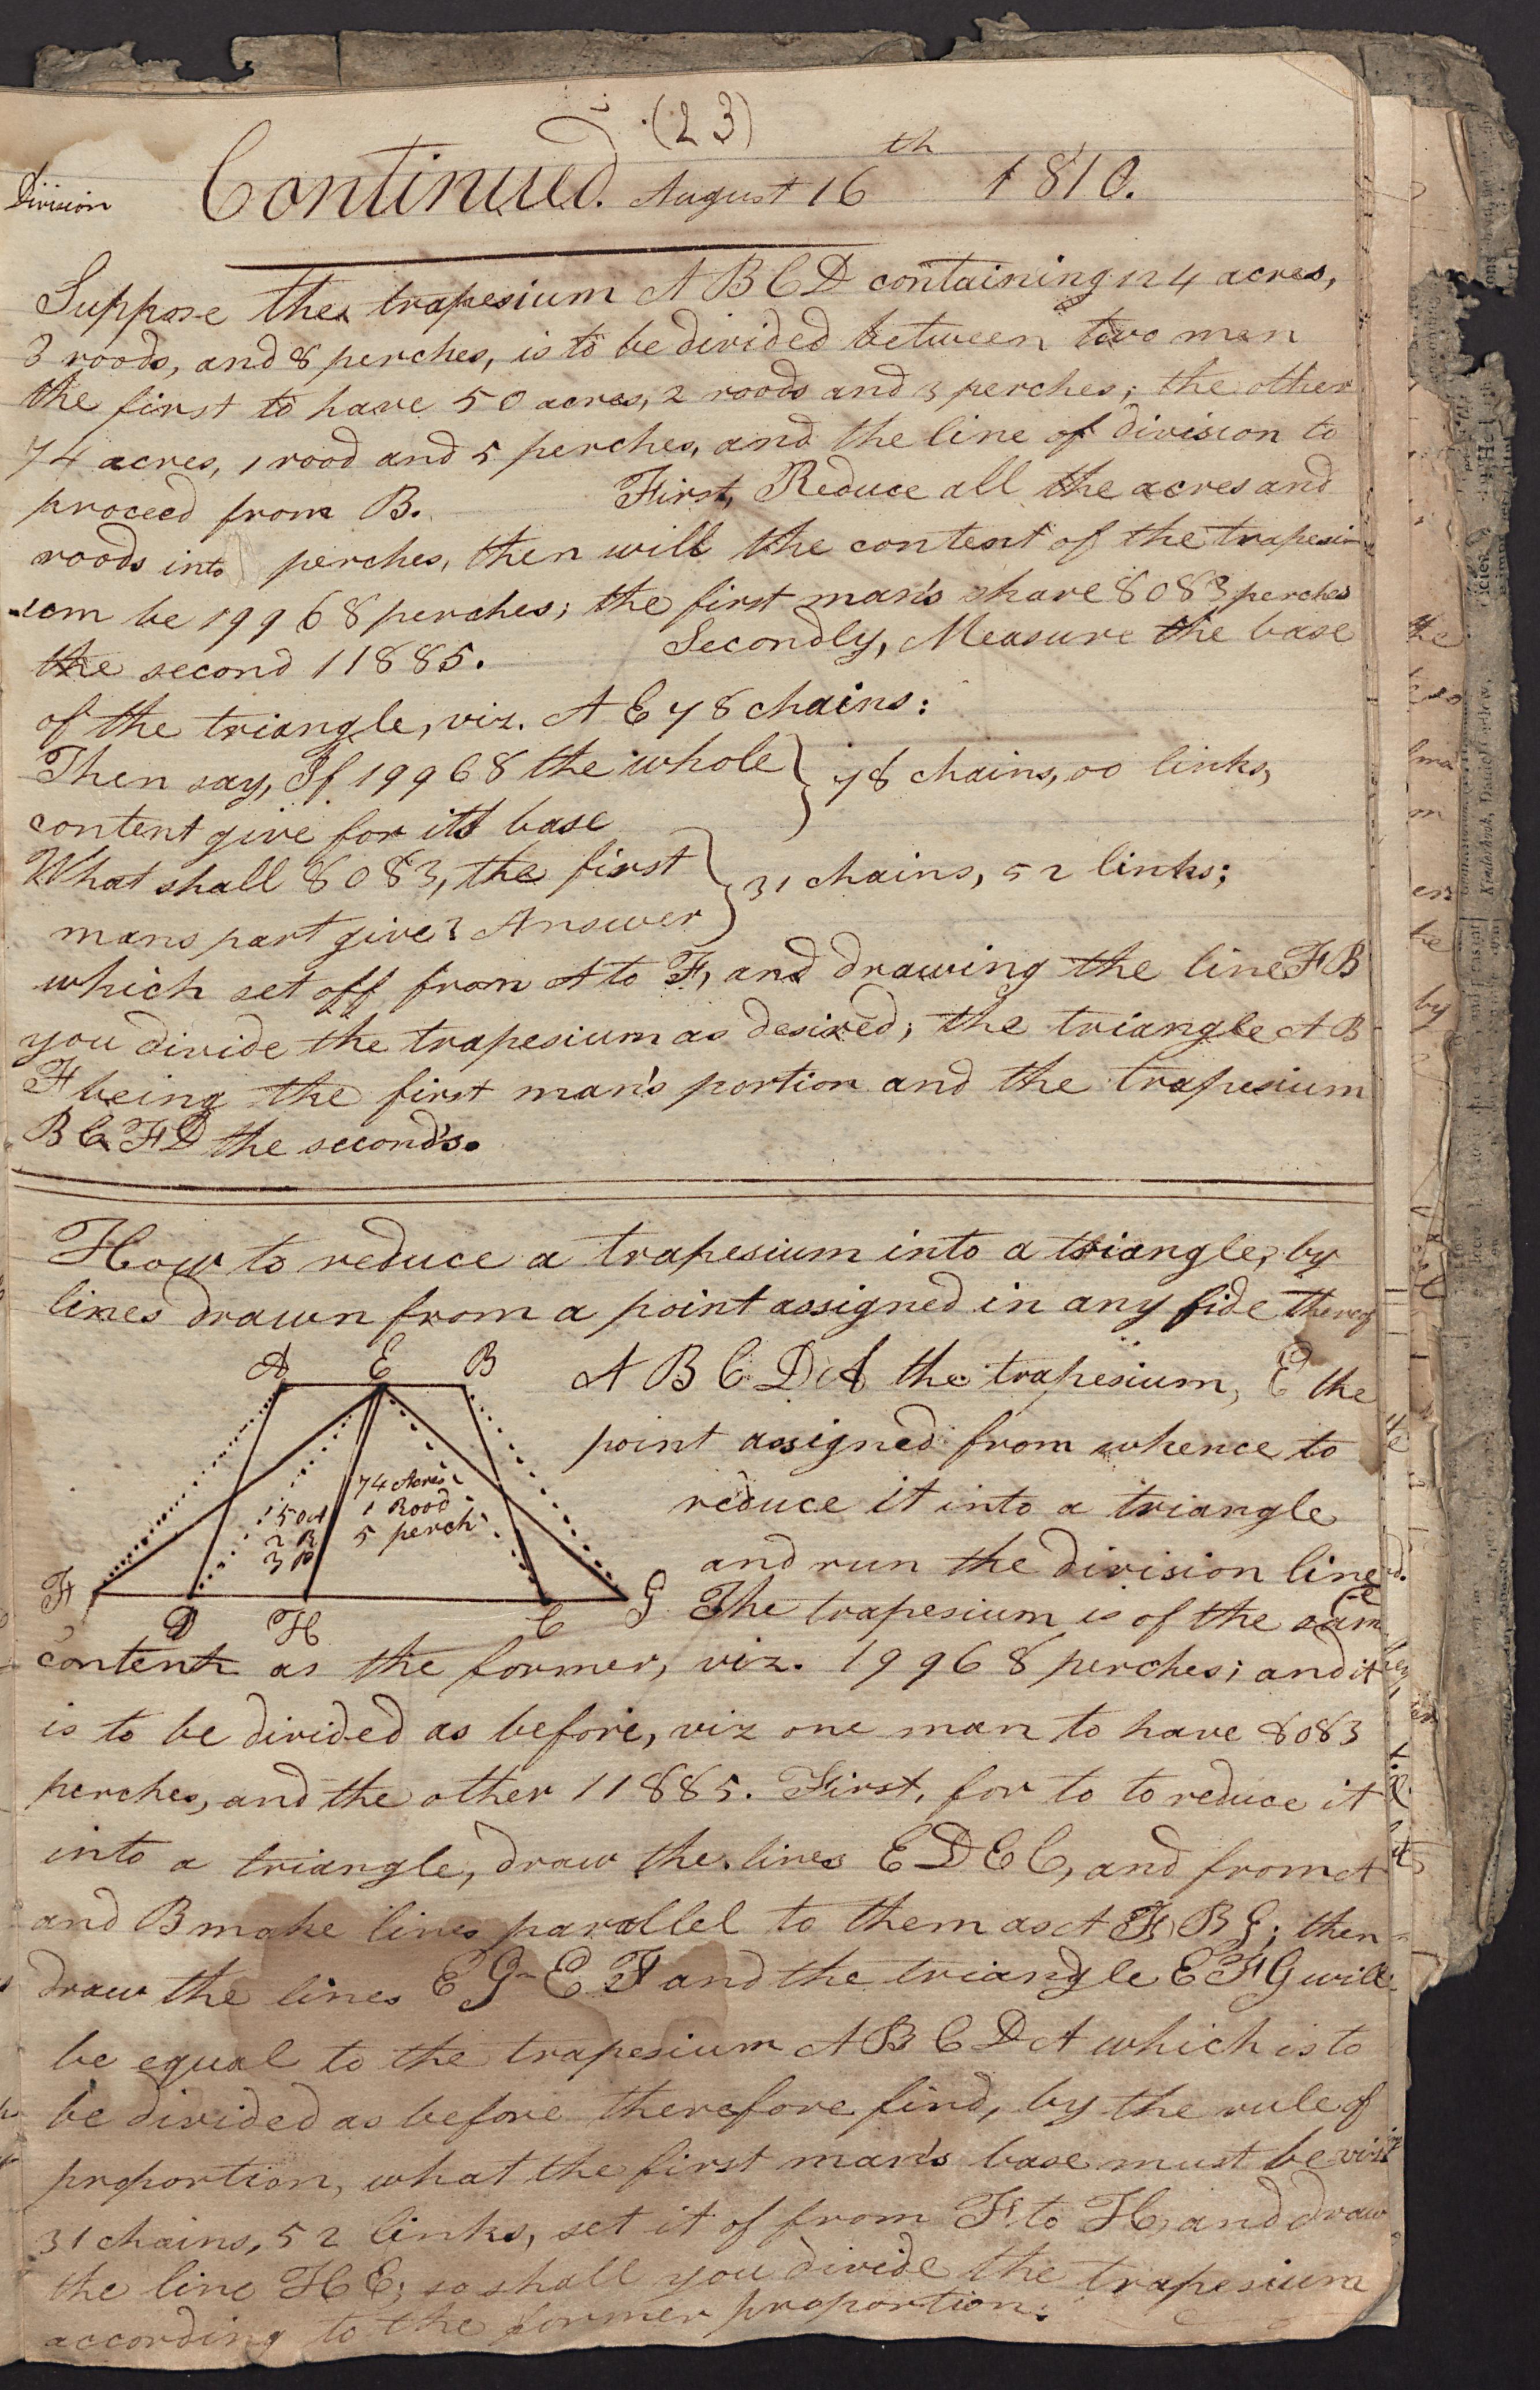 (23)
Division Continued. August 16th 1810.
Suppose the trapesium A B C D containing 124 acres,
3 roods, and 8 perches, is to be divided between two men
the first to have 50 acres, 2 roods and 3 perches; the other
74 acres, 1 rood and 5 perches, and the line of division to
proceed from B. First, Reduce all the acres and
roods into perches, then will the content of the trapesi
-um be 19968 perches; the first man's share 8083 perches
the second 11885. Secondly, Measure the base
of the triangle, viz. A E 78 chains:
Then say, If 19968 the whole } 78 chains, 00 links,
content give for its base
What shall 8083, the first } 31 chains, 52 links;
mans part give? Answer
which set off from A to F, and drawing the line F B
you divide the trapesium as desired; the triangle A B
F being the first man's portion and the trapesium
B C F D the second's.
How to reduce a trapesium into a triangle, by
lines drawn from a point assigned in any side thereof
A E B
A B C D A the trapesium, E the
point assigned from whence to
reduce it into a triangle
and run the division line
74 Acres
1 Rood
5 perch
50 A
2 R
3 P
F D H C G
The trapesium is of the same
content as the former, viz. 19968 perches; and it
is to be divided as before, viz one man to have 8083
perches, and the other 11885. First, for to to reduce it
into a triangle, draw the lines E D E C, and from A
and B make lines parallel to them as A F, B G; then
draw the lines E G - E F and the triangle E F G will
be equal to the trapesium A B C D A which is to
be divided as before therefore find, by the rule of
proportion, what the first man's base must be viz
31 chains, 52 links, set it of from F to H, and draw
the line H E; so shall you divide the trapesium
according to the former proportion.